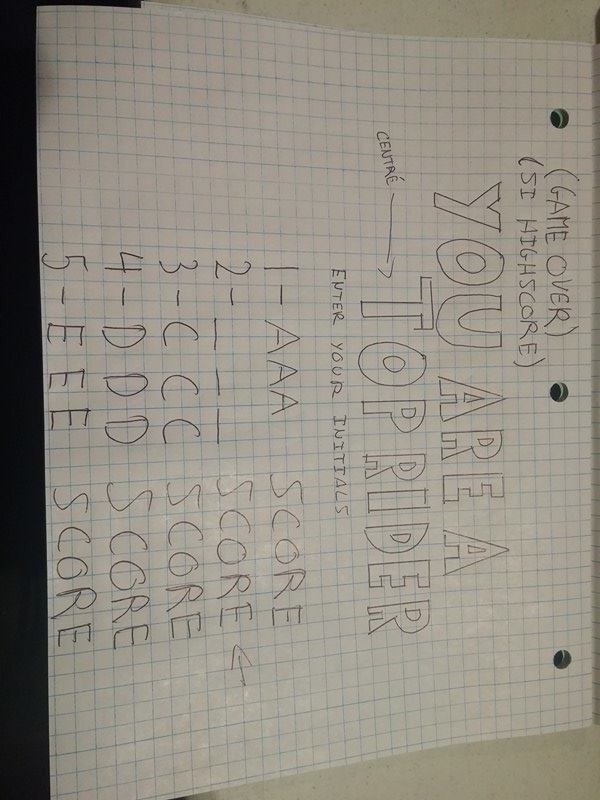 (GAME OVER)
(SI HIGHSCORE)
YOU ARE A
CENTRÉ → TOP RIDER
ENTER YOUR INITIALS
1-AAA SCORE
2- _ _ _ SCORE ←
3-CCC SCORE
4-DDD SCORE
5-EEE SCORE